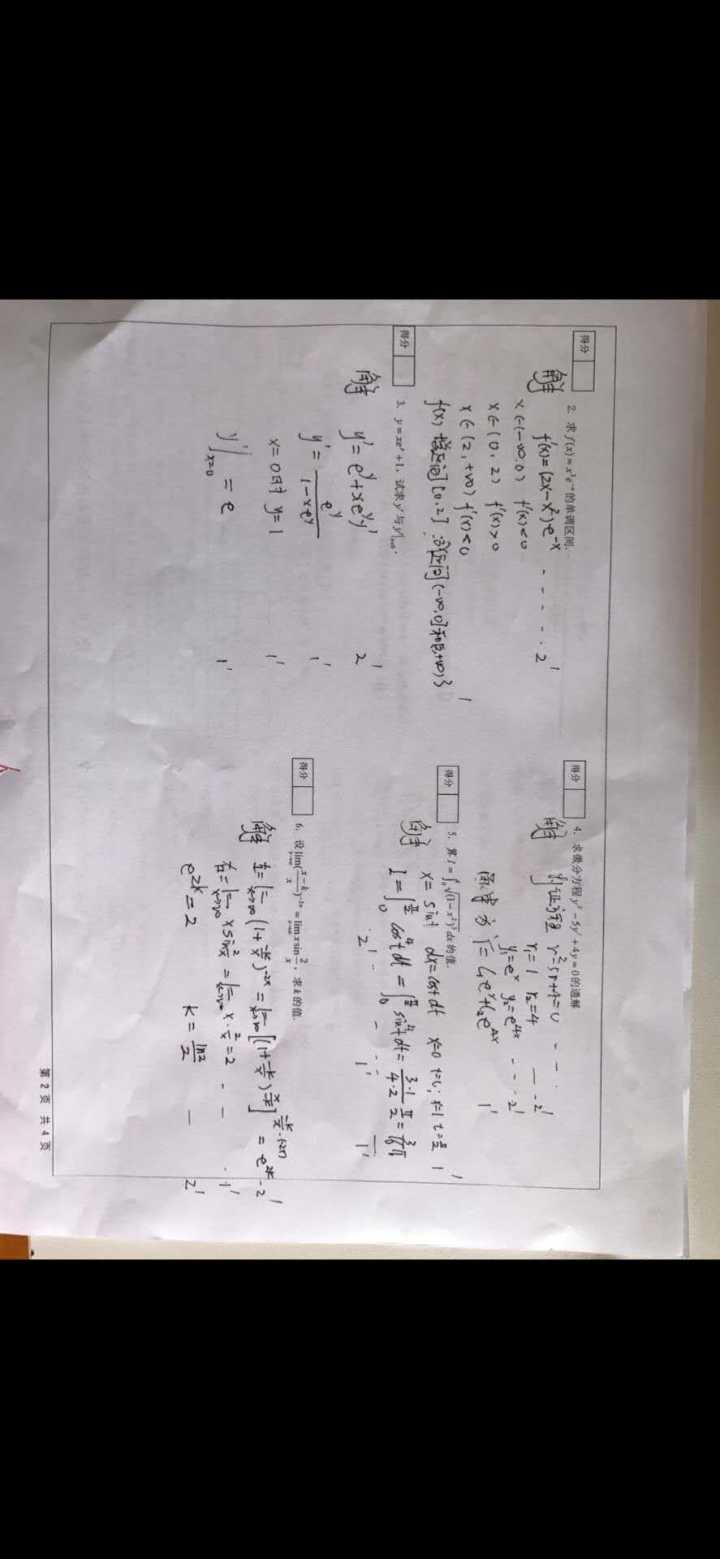 得分
2. 求 f(x)=x²e⁻ˣ 的单调区间.
解 f'(x)=(2x-x²)·e^{-x} - - - - - 2'
x∈(-∞,0) f'(x)<0
x∈(0,2) f'(x)>0
x∈(2,+∞) f'(x)<0
f(x) 增区间[0,2] 减区间(-∞,0]和[2,+∞) 3'
得分
3. y=xe^y+1, 试求 y' 与 y'|_{x=0}.
解 y'=e^y+xe^y y' 2'
y'=\frac{e^y}{1-xe^y} 1'
x=0时 y=1 1'
y'|_{x=0}=e 1'
得分
4. 求微分方程 y''-5y'+4y=0 的通解
解 特征方程 r²-5r+4=0 - - - 1'
r₁=1 r₂=4 — - 2'
y₁=e^x y₂=e^{4x} - - - 2'
y=C₁e^x+C₂e^{4x} 1'
得分
5. 算 I=∫₀¹√((1-x²)³)dx 的值.
解 x=sint dx=costdt x=0 t=0; x=1 t=\frac{π}{2} 1'
I=∫₀^{\frac{π}{2}}cos⁴tdt=∫₀^{\frac{π}{2}}sin⁴tdt=\frac{3·1}{4·2}\frac{π}{2}=\frac{3}{16}π
2' - - - 1' 1'
得分
6. 设 lim_{x→∞}(\frac{x-k}{x})^{-2x}=lim_{x→∞}xsin\frac{2}{x}, 求 k 的值.
解 左=lim_{x→∞}(1+\frac{-k}{x})^{-2x}=lim_{x→∞}[(1+\frac{-k}{x})^{\frac{x}{-k}}]^{\frac{-k}{x}·(-2x)}=e^{2k} - 2'
右=lim_{x→∞}xsin\frac{2}{x}=lim_{x→∞}x·\frac{2}{x}=2 - - - 1'
e^{2k}=2 k=\frac{ln2}{2} — 2'
第 2 页 共 4 页